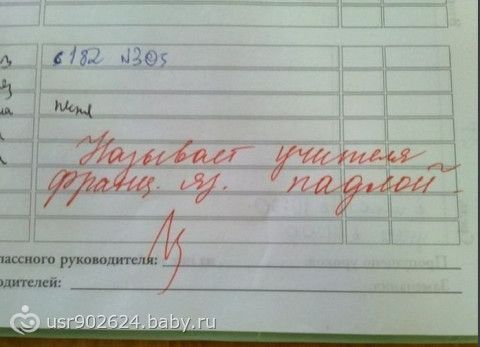 с182 №305
Называет учителя
франц. яз. падлой.
лассного руководителя:
одителей:
usr902624.baby.ru